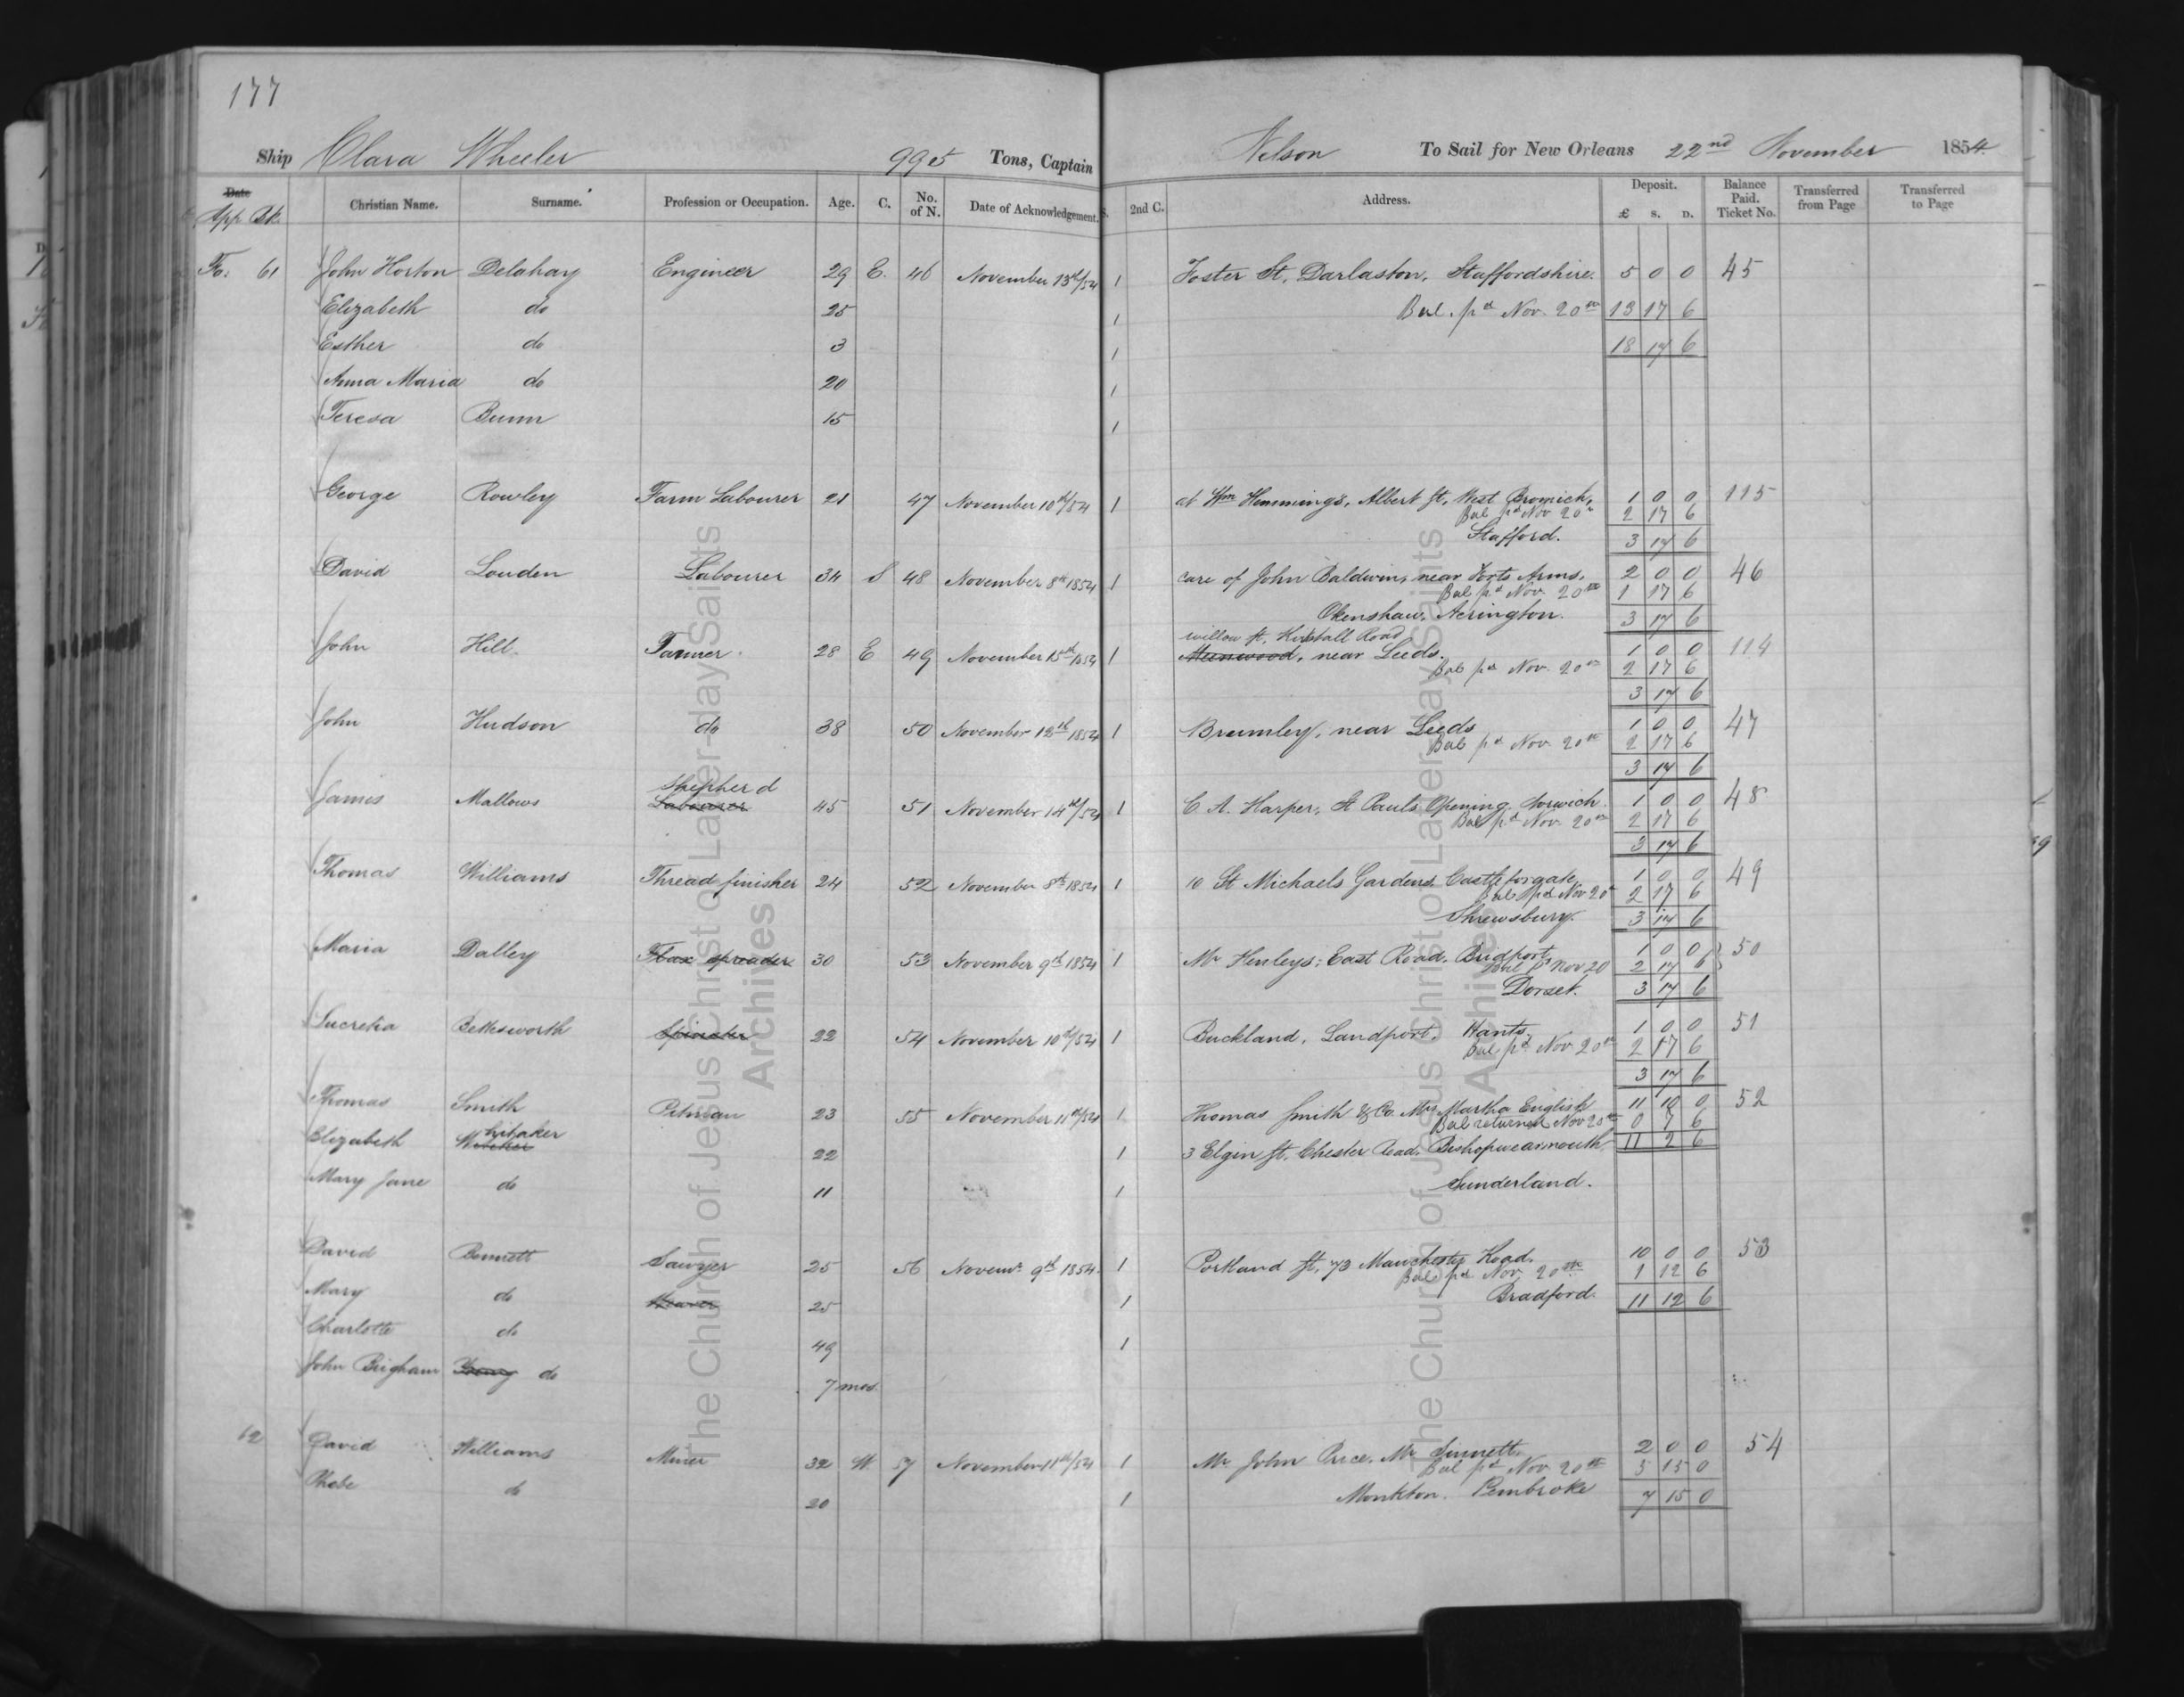 177
Ship Clara Wheeler 995 Tons, Captain Nelson To Sail for New Orleans 22nd November 1854
Date App Bk. Christian Name. Surname. Profession or Occupation. Age. C. No. of N. Date of Acknowledgement. S. 2nd C. Address. Deposit. £ S. D. Balance Paid. Ticket No. Transferred from Page Transferred to Page
Fo. 61 John Horton Delahay Engineer 29 E. 46 November 13th/54 1 Foster St, Darlaston, Staffordshire. 5 0 0 45
Elizabeth do 25 1 Bal. pd Nov. 20th 13 17 6
Esther do 3 1 18 17 6
Anna Maria do 20 1
Teresa Bunn 15 1
George Rowley Farm Labourer 21 47 November 10th/54 1 at Wm Hemmings, Albert St, West Bromich, 1 0 0 115
Bal pd Nov 20th 2 17 6
Stafford. 3 17 6
David Louden Labourer 34 S 48 November 8th 1854 1 care of John Baldwin, near Forts Arms, 2 0 0 46
Bal pd Nov. 20th 1 17 6
Okenshaw, Acrington. 3 17 6
willow st, Kirkstall Road
John Hill. Farmer. 28 E 49 November 15th 1854 1 Meanwood, near Leeds. 1 0 0 114
Bal pd Nov. 20th 2 17 6
3 17 6
John Hudson do 38 50 November 12th 1854 1 Bramley, near Leeds 1 0 0 47
Bal pd Nov. 20th 2 17 6
3 17 6
Shepherd
James Mallows Labourer 45 51 November 14th/54 1 C. A. Harper, St Pauls Opening, Norwich. 1 0 0 48
Bal pd Nov. 20th 2 17 6
3 17 6
Thomas Williams Thread finisher 24 52 November 8th 1854 1 10 St Michaels Gardens Castle forgate, 1 0 0 49
Bal pd Nov 20th 2 17 6
Shrewsbury. 3 17 6
Maria Dalley Flax spreader 30 53 November 9th 1854 1 Mr Henleys, East Road, Bridport, 1 0 0 50
Bal pd Nov 20 2 17 6
Dorset. 3 17 6
Lucretia Bettesworth Spinster 22 54 November 10th/54 1 Buckland, Landport, Hants. 1 0 0 51
Bal pd Nov 20th 2 17 6
3 17 6
Thomas Smith Pitman 23 55 November 11th/54 1 Thomas Smith & Co. Mrs Martha English 11 10 0 52
Bal returned Nov 20th 0 7 6
hitaker
Elizabeth 22 1 3 Elgin St, Chester Road, Bishopwearmouth, 11 2 6
Mary Jane do 11 1 Sunderland.
David Bennett Sawyer 25 56 Novemr 9th 1854. 1 Portland St, 73 Manchester Road, 10 0 0 53
Bal pd Nov. 20th 1 12 6
Mary do Weaver 25 1 Bradford. 11 12 6
Charlotte do 49 1
John Brigham Young do 7 mos.
62 David Williams Miner 32 W. 57 November 11th/54 1 Mr John Price, Mr Sinnett, 2 0 0 54
Bal pd Nov 20th 5 15 0
Phebe do 20 1 Monkton. Pembroke 7 15 0
The Church of Jesus Christ of Latter-day Saints
Archives
The Church of Jesus Christ of Latter-day Saints
Archives